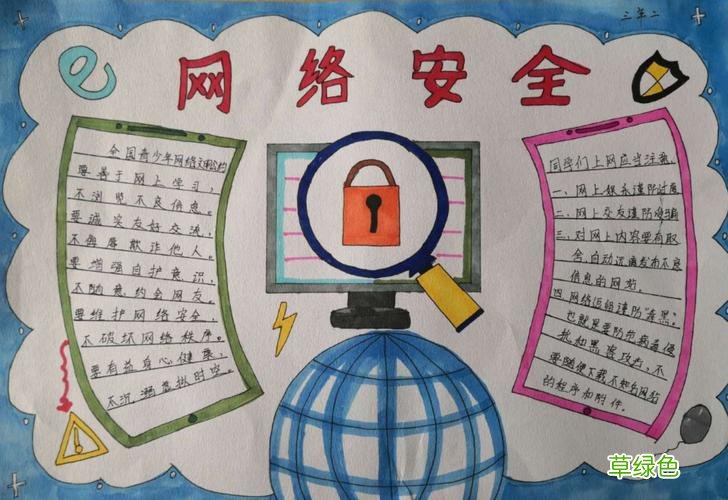 三年二
网络安全
全国青少年网络文明公约
要善于网上学习，
不浏览不良信息。
要诚实友好交流，
不侮辱欺诈他人。
要增强自护意识，
不随意约会网友。
要维护网络安全
不破坏网络秩序。
要有益身心健康，
不沉溺虚拟时空。
同学们上网应当注意：
一、网上娱乐谨防过度
二、网上交友谨防
三、对网上内容要有取
舍自动远离发布不良
信息的网站。
四、网络运用谨防“毒黑”。
也就是要防范病毒侵
扰和黑客攻击，不
要随便下载不知名网站
的程序和附件。
草绿色